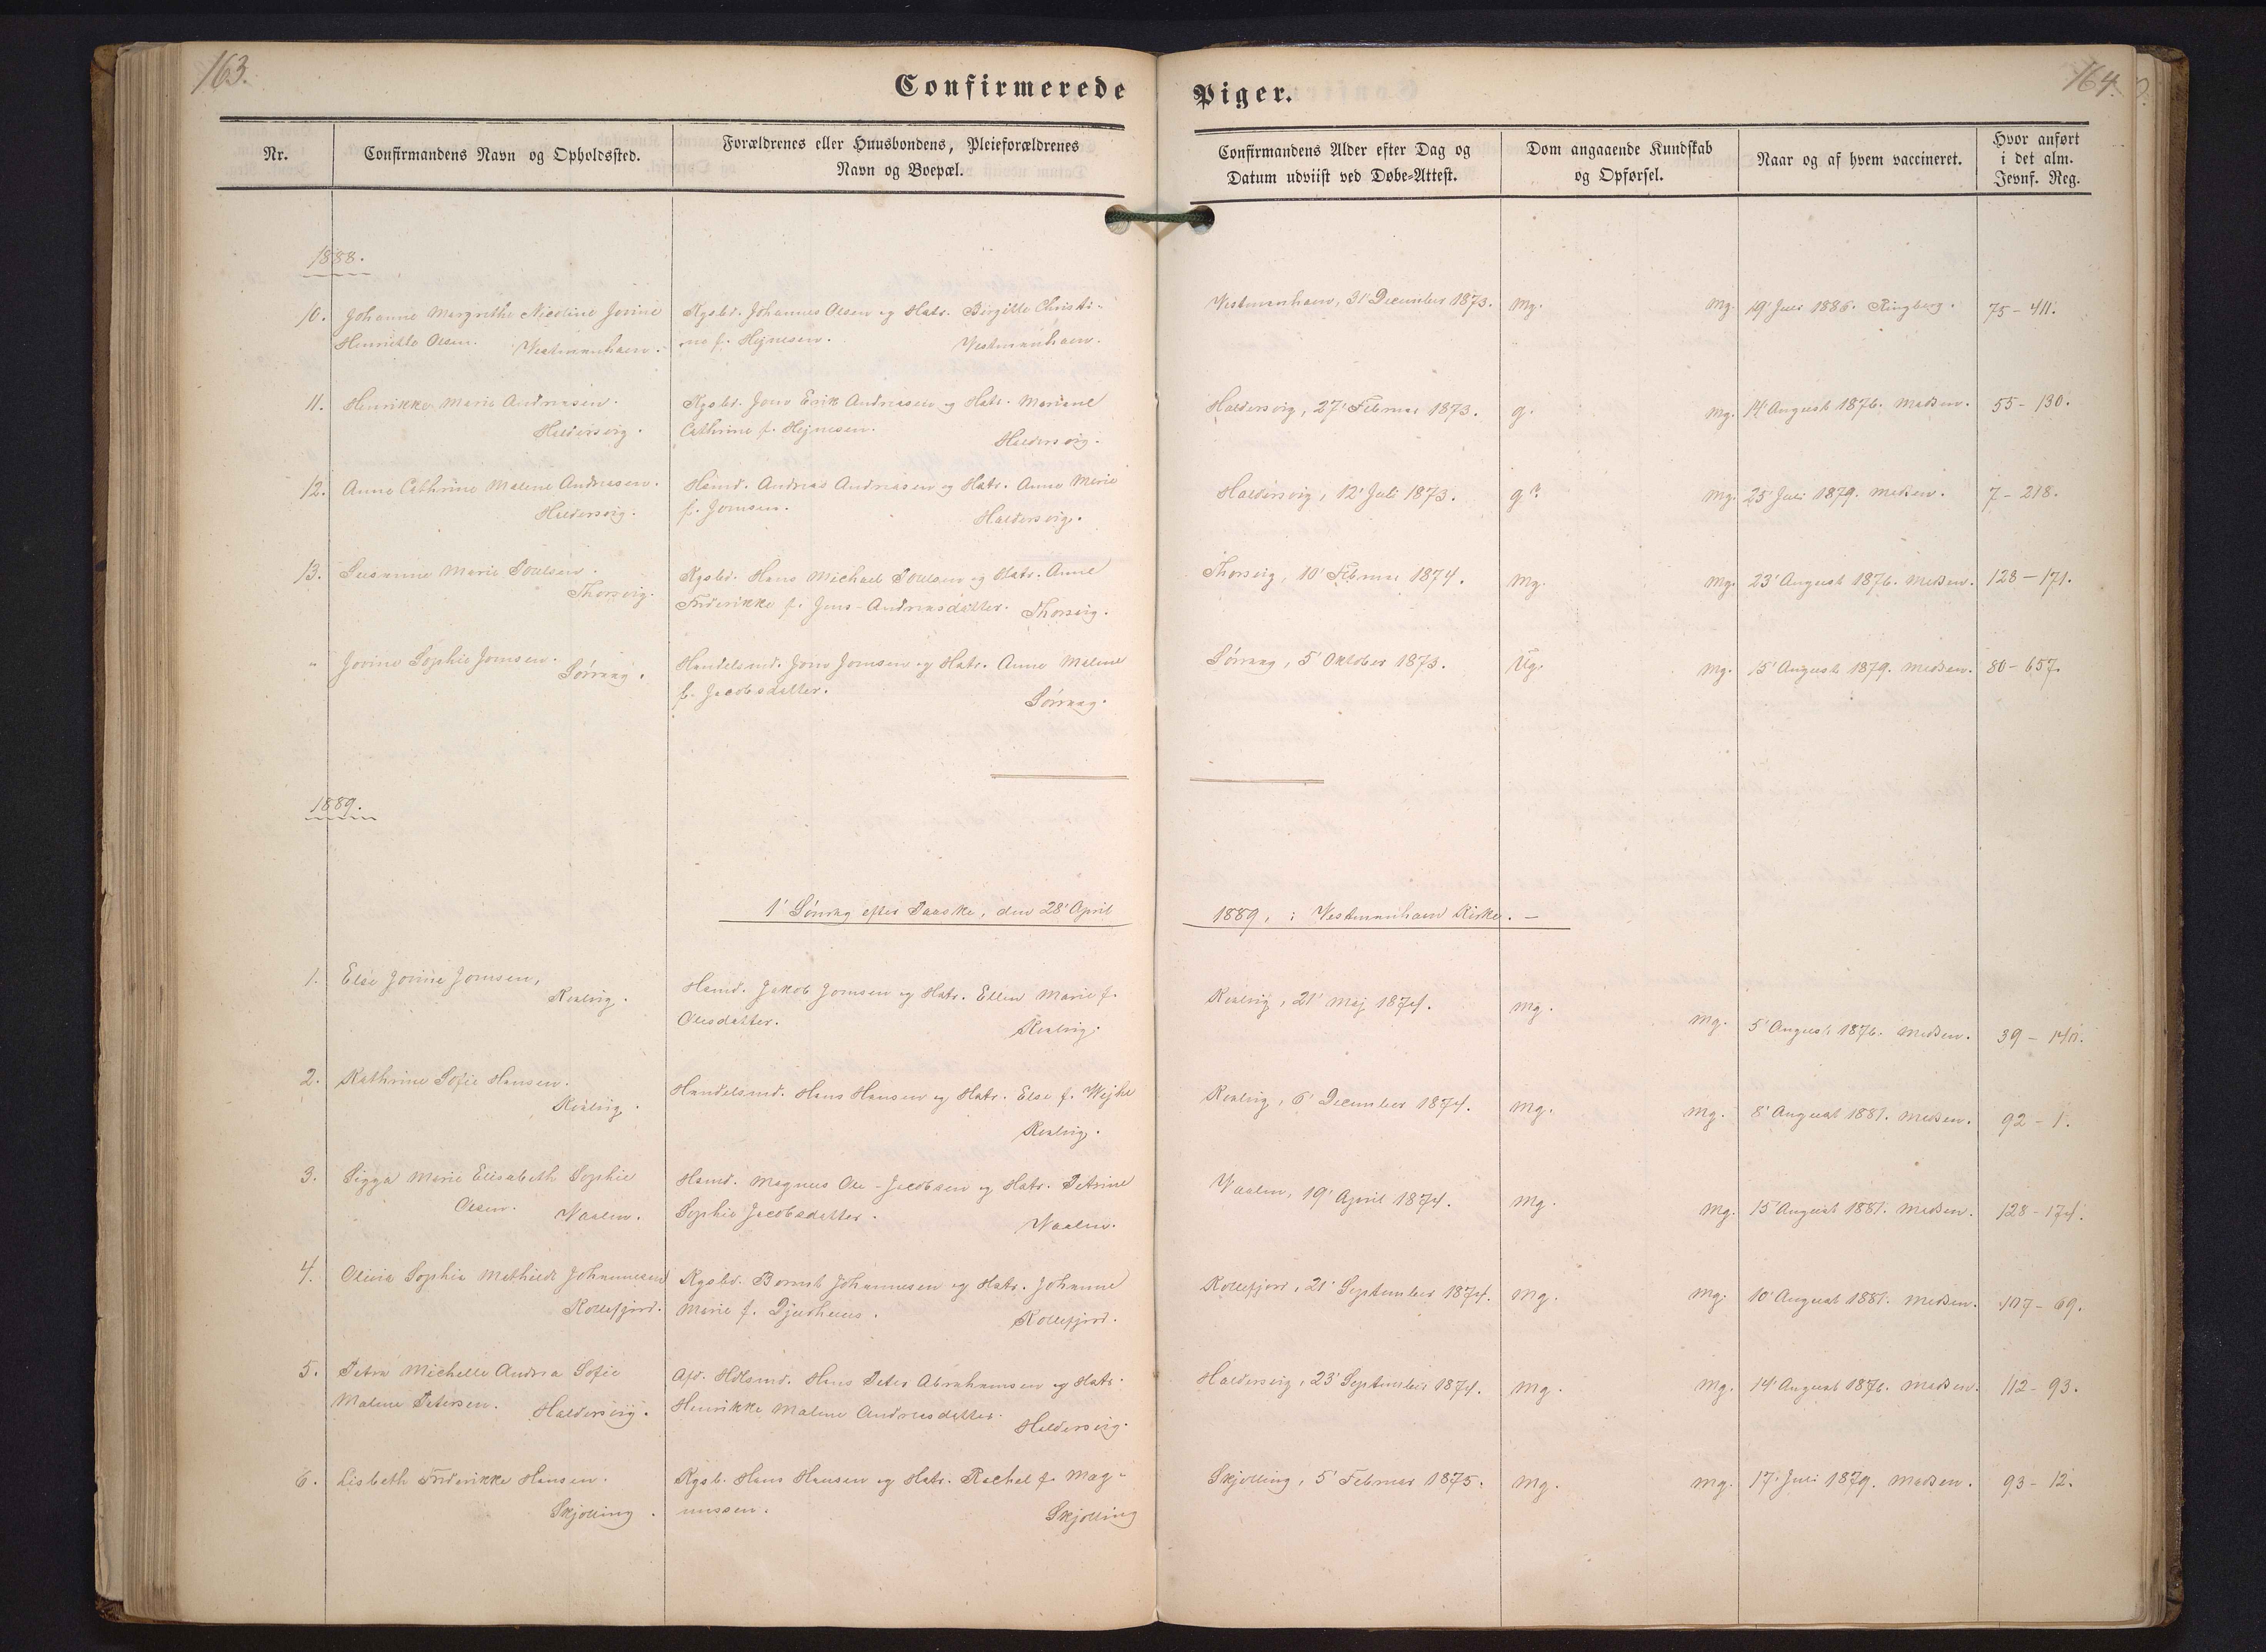 163.
164.
Confirmerede Piger.
Nr.
Confirmandens Navn og Opholdssted.
Forældrenes eller Huusbondens, Pleieforældrenes
Navn og Boepæl.
Confirmandens Alder efter Dag og
Datum udviist ved Døbe-Attest.
Dom angaaende Kundskab
og Opførsel.
Naar og af hvem vaccineret.
Hvor anført
i det alm.
Jevnf. Reg.
1888.
10. Johanne Margrethe Nicoline Jovine
Henriette Olsen. Vestmanhavn.
Kgsbd. Johannes Olsen og Hstr. Birgitte Christi-
ne f. Hejnesen. Vestmanhavn.
Vestmanhavn, 31' December 1873. mg. mg. 19' Juli 1886. Ringberg. 75 - 411.
11. Henrikke Marie Andreasen.
Haldersvig.
Kgsbd. Jens Erik Andreasen og Hstr. Mariane
Cathrine f. Hejnesen.
Haldersvig.
Haldersvig, 27' Februar 1873. g. mg. 14' August 1876. Madsen. 55 - 130.
12. Anne Cathrine Malene Andreasen.
Haldersvig.
Hsmd. Andreas Andreasen og Hstr. Anne Marie
f. Joensen.
Haldersvig.
Haldersvig, 12' Juli 1873. g?. mg. 25' Juli 1879. Madsen. 7 - 218.
13. Susanne Marie Poulsen.
Thorsvig.
Kgsbd. Hans Michael Poulsen og Hstr. Anne
Friderikke f. Jens-Andreasdatter. Thorsvig.
Thorsvig, 10' Februar 1874. mg. mg. 23' August 1876. Madsen. 128 - 171.
" Jovine Sophie Joensen.
Sørvaag.
Handelsmd. Jens Joensen og Hstr. Anne Malene
f. Jacobsdatter.
Sørvaag.
Sørvaag, 5' Oktober 1873. Ug. mg. 15' August 1879. Madsen. 80 - 657.
1889.
1' Søndag efter Paaske, den 28' April 1889, i Vestmanhavn Kirke. -
1. Else Jovine Joensen,
Kvalvig.
Hsmd. Jakob Joensen og Hstr. Ellen Marie f.
Olesdatter.
Kvalvig.
Kvalvig, 21' Maj 1874. mg. mg. 5' August 1876. Madsen. 39 -
2. Kathrine Sofie Hansen.
Kvalvig.
Handelsmd. Hans Hansen og Hstr. Else f. Wejhe
Kvalvig.
Kvalvig, 6' December 1874. mg. mg. 8' August 1881. Madsen. 92 - 1.
3. Sigga Marie Elisabeth Sophie
Olsen. Vaalen.
Hsmd. Magnus Ole-Jacobsen og Hstr. Petrine
Sophie Jacobsdatter.
Vaalen.
Vaalen, 19' April 1874. mg. mg. 15' August 1881. Madsen. 128 - 174.
4. Olivia Sophia Mathilde Johannesen
Kollefjord.
Kgsbd. Johannesen og Hstr. Johanne
Marie f. Djurhuus.
Kollefjord.
Kollefjord, 21' September 1874. mg. mg. 10' August 1881. Madsen. 107 - 69.
5. Petra Michelle Andrea Sofie
Malene Petersen. Haldersvig.
Afd. Hdlsmd. Hans Peter Abrahamsen og Hstr.
Henrikke Malene Andreasdatter.
Haldersvig.
Haldersvig, 23' September 1874. mg. mg. 14' August 1876. Madsen. 112 - 93.
6. Lisbeth Friderikke Hansen.
Skjelling.
Kgsb. Hans Hansen og Hstr. Rachel f. Mag-
nussen.
Skjelling
Skjelling, 5' Februar 1875. mg. mg. 17' Juli 1879. Madsen. 93 - 12.